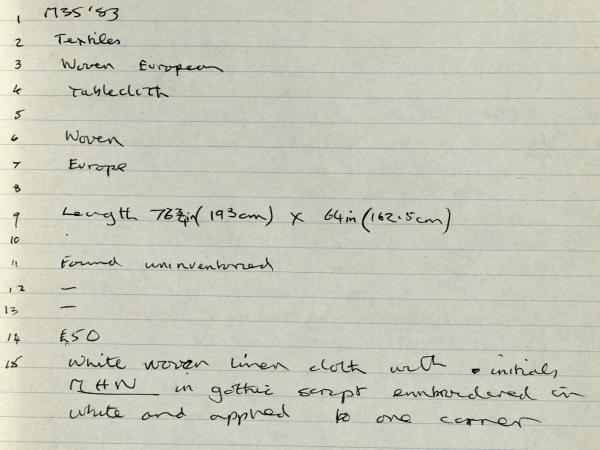 1 M35 '83
2 Textiles
3 Woven European
4 Tablecloth
5
6 Woven
7 Europe
8
9 Length 76¾in (193cm) x 64in (162.5cm)
10
11 Found uninventorized
12 —
13 —
14 £50
15 White woven linen cloth with initials
MHW in gothic script embordered in
white and applied to one corner